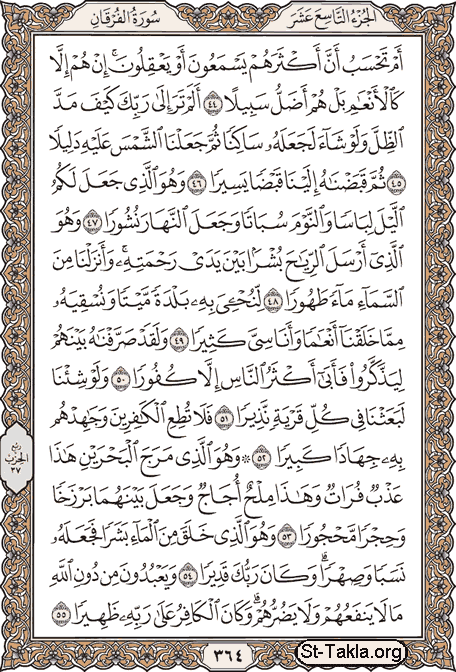 الجزء التاسع عشر
سورة الفرقان
أَمْ تَحْسَبُ أَنَّ أَكْثَرَهُمْ يَسْمَعُونَ أَوْ يَعْقِلُونَ ۚ إِنْ هُمْ إِلَّا
كَالْأَنْعَٰمِ بَلْ هُمْ أَضَلُّ سَبِيلًا ٤٤ أَلَمْ تَرَ إِلَىٰ رَبِّكَ كَيْفَ مَدَّ
الظِّلَّ وَلَوْ شَآءَ لَجَعَلَهُۥ سَاكِنًا ثُمَّ جَعَلْنَا الشَّمْسَ عَلَيْهِ دَلِيلًا
٤٥ ثُمَّ قَبَضْنَٰهُ إِلَيْنَا قَبْضًا يَسِيرًا ٤٦ وَهُوَ الَّذِى جَعَلَ لَكُمُ
الَّيْلَ لِبَاسًا وَالنَّوْمَ سُبَاتًا وَجَعَلَ النَّهَارَ نُشُورًا ٤٧ وَهُوَ
الَّذِىٓ أَرْسَلَ الرِّيَٰحَ بُشْرًۢا بَيْنَ يَدَىْ رَحْمَتِهِۦ ۚ وَأَنزَلْنَا مِنَ
السَّمَآءِ مَآءً طَهُورًا ٤٨ لِّنُحْۦِىَ بِهِۦ بَلْدَةً مَّيْتًا وَنُسْقِيَهُۥ
مِمَّا خَلَقْنَآ أَنْعَٰمًا وَأَنَاسِىَّ كَثِيرًا ٤٩ وَلَقَدْ صَرَّفْنَٰهُ بَيْنَهُمْ
لِيَذَّكَّرُوا۟ فَأَبَىٰٓ أَكْثَرُ النَّاسِ إِلَّا كُفُورًا ٥٠ وَلَوْ شِئْنَا
لَبَعَثْنَا فِى كُلِّ قَرْيَةٍ نَّذِيرًا ٥١ فَلَا تُطِعِ الْكَٰفِرِينَ وَجَٰهِدْهُم
بِهِۦ جِهَادًا كَبِيرًا ٥٢ ۞ وَهُوَ الَّذِى مَرَجَ الْبَحْرَيْنِ هَٰذَا
عَذْبٌ فُرَاتٌ وَهَٰذَا مِلْحٌ أُجَاجٌ وَجَعَلَ بَيْنَهُمَا بَرْزَخًا
وَحِجْرًا مَّحْجُورًا ٥٣ وَهُوَ الَّذِى خَلَقَ مِنَ الْمَآءِ بَشَرًا فَجَعَلَهُۥ
نَسَبًا وَصِهْرًا ۗ وَكَانَ رَبُّكَ قَدِيرًا ٥٤ وَيَعْبُدُونَ مِن دُونِ اللَّهِ
مَا لَا يَنفَعُهُمْ وَلَا يَضُرُّهُمْ ۗ وَكَانَ الْكَافِرُ عَلَىٰ رَبِّهِۦ ظَهِيرًا ٥٥
ربع
الحزب
٣٧
٣٦٤
St-Takla.org